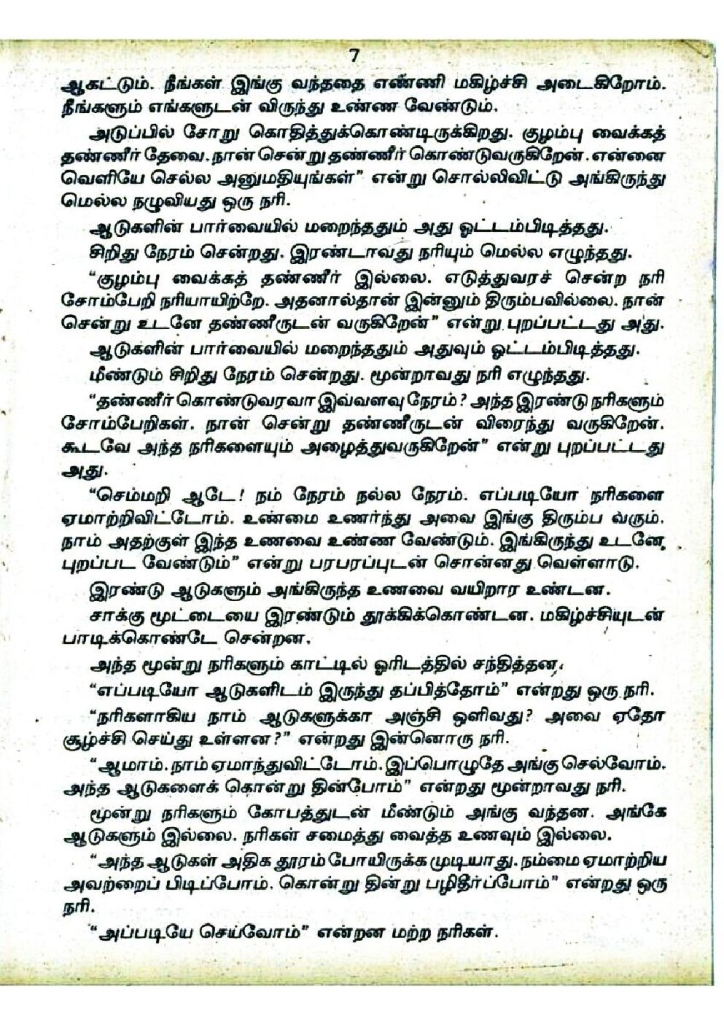 7
ஆகட்டும். நீங்கள் இங்கு வந்ததை எண்ணி மகிழ்ச்சி அடைகிறோம்.
நீங்களும் எங்களுடன் விருந்து உண்ண வேண்டும்.
அடுப்பில் சோறு கொதித்துக்கொண்டிருக்கிறது. குழம்பு வைக்கத்
தண்ணீர் தேவை. நான் சென்று தண்ணீர் கொண்டுவருகிறேன். என்னை
வெளியே செல்ல அனுமதியுங்கள்” என்று சொல்லிவிட்டு அங்கிருந்து
மெல்ல நழுவியது ஒரு நரி.
ஆடுகளின் பார்வையில் மறைந்ததும் அது ஓட்டம்பிடித்தது.
சிறிது நேரம் சென்றது. இரண்டாவது நரியும் மெல்ல எழுந்தது.
“குழம்பு வைக்கத் தண்ணீர் இல்லை. எடுத்துவரச் சென்ற நரி
சோம்பேறி நரியாயிற்றே. அதனால்தான் இன்னும் திரும்பவில்லை. நான்
சென்று உடனே தண்ணீருடன் வருகிறேன்” என்று புறப்பட்டது அது.
ஆடுகளின் பார்வையில் மறைந்ததும் அதுவும் ஓட்டம்பிடித்தது.
மீண்டும் சிறிது நேரம் சென்றது. மூன்றாவது நரி எழுந்தது.
“தண்ணீர் கொண்டுவரவா இவ்வளவு நேரம்? அந்த இரண்டு நரிகளும்
சோம்பேறிகள். நான் சென்று தண்ணீருடன் விரைந்து வருகிறேன்.
கூடவே அந்த நரிகளையும் அழைத்துவருகிறேன்” என்று புறப்பட்டது
அது.
“செம்மறி ஆடே! நம் நேரம் நல்ல நேரம். எப்படியோ நரிகளை
ஏமாற்றிவிட்டோம். உண்மை உணர்ந்து அவை இங்கு திரும்ப வரும்.
நாம் அதற்குள் இந்த உணவை உண்ண வேண்டும். இங்கிருந்து உடனே
புறப்பட வேண்டும்” என்று பரபரப்புடன் சொன்னது வெள்ளாடு.
இரண்டு ஆடுகளும் அங்கிருந்த உணவை வயிறார உண்டன.
சாக்கு மூட்டையை இரண்டும் தூக்கிக்கொண்டன. மகிழ்ச்சியுடன்
பாடிக்கொண்டே சென்றன.
அந்த மூன்று நரிகளும் காட்டில் ஓரிடத்தில் சந்தித்தன.
“எப்படியோ ஆடுகளிடம் இருந்து தப்பித்தோம்” என்றது ஒரு நரி.
“நரிகளாகிய நாம் ஆடுகளுக்கா அஞ்சி ஒளிவது? அவை ஏதோ
சூழ்ச்சி செய்து உள்ளன?” என்றது இன்னொரு நரி.
“ஆமாம். நாம் ஏமாந்துவிட்டோம். இப்பொழுதே அங்கு செல்வோம்.
அந்த ஆடுகளைக் கொன்று தின்போம்” என்றது மூன்றாவது நரி.
மூன்று நரிகளும் கோபத்துடன் மீண்டும் அங்கு வந்தன. அங்கே
ஆடுகளும் இல்லை. நரிகள் சமைத்து வைத்த உணவும் இல்லை.
“அந்த ஆடுகள் அதிக தூரம் போயிருக்க முடியாது. நம்மை ஏமாற்றிய
அவற்றைப் பிடிப்போம். கொன்று தின்று பழிதீர்ப்போம்” என்றது ஒரு
நரி.
“அப்படியே செய்வோம்” என்றன மற்ற நரிகள்.